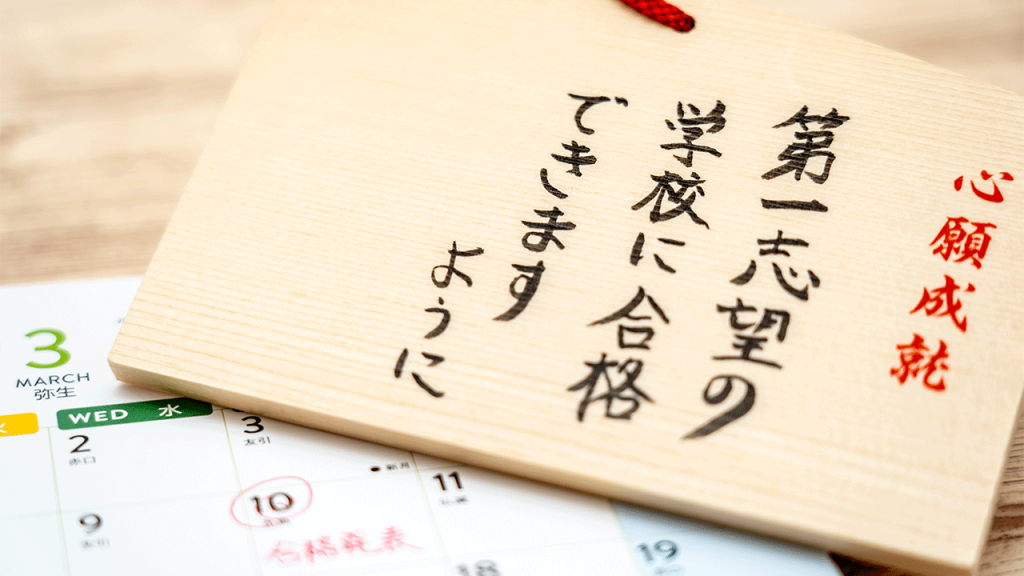 心願成就
第一志望の
学校に合格
できます
ように
3
MARCH
弥生
WED 水
2
赤口
3
友引
● 新月
9
10
合格発表
11
18
19